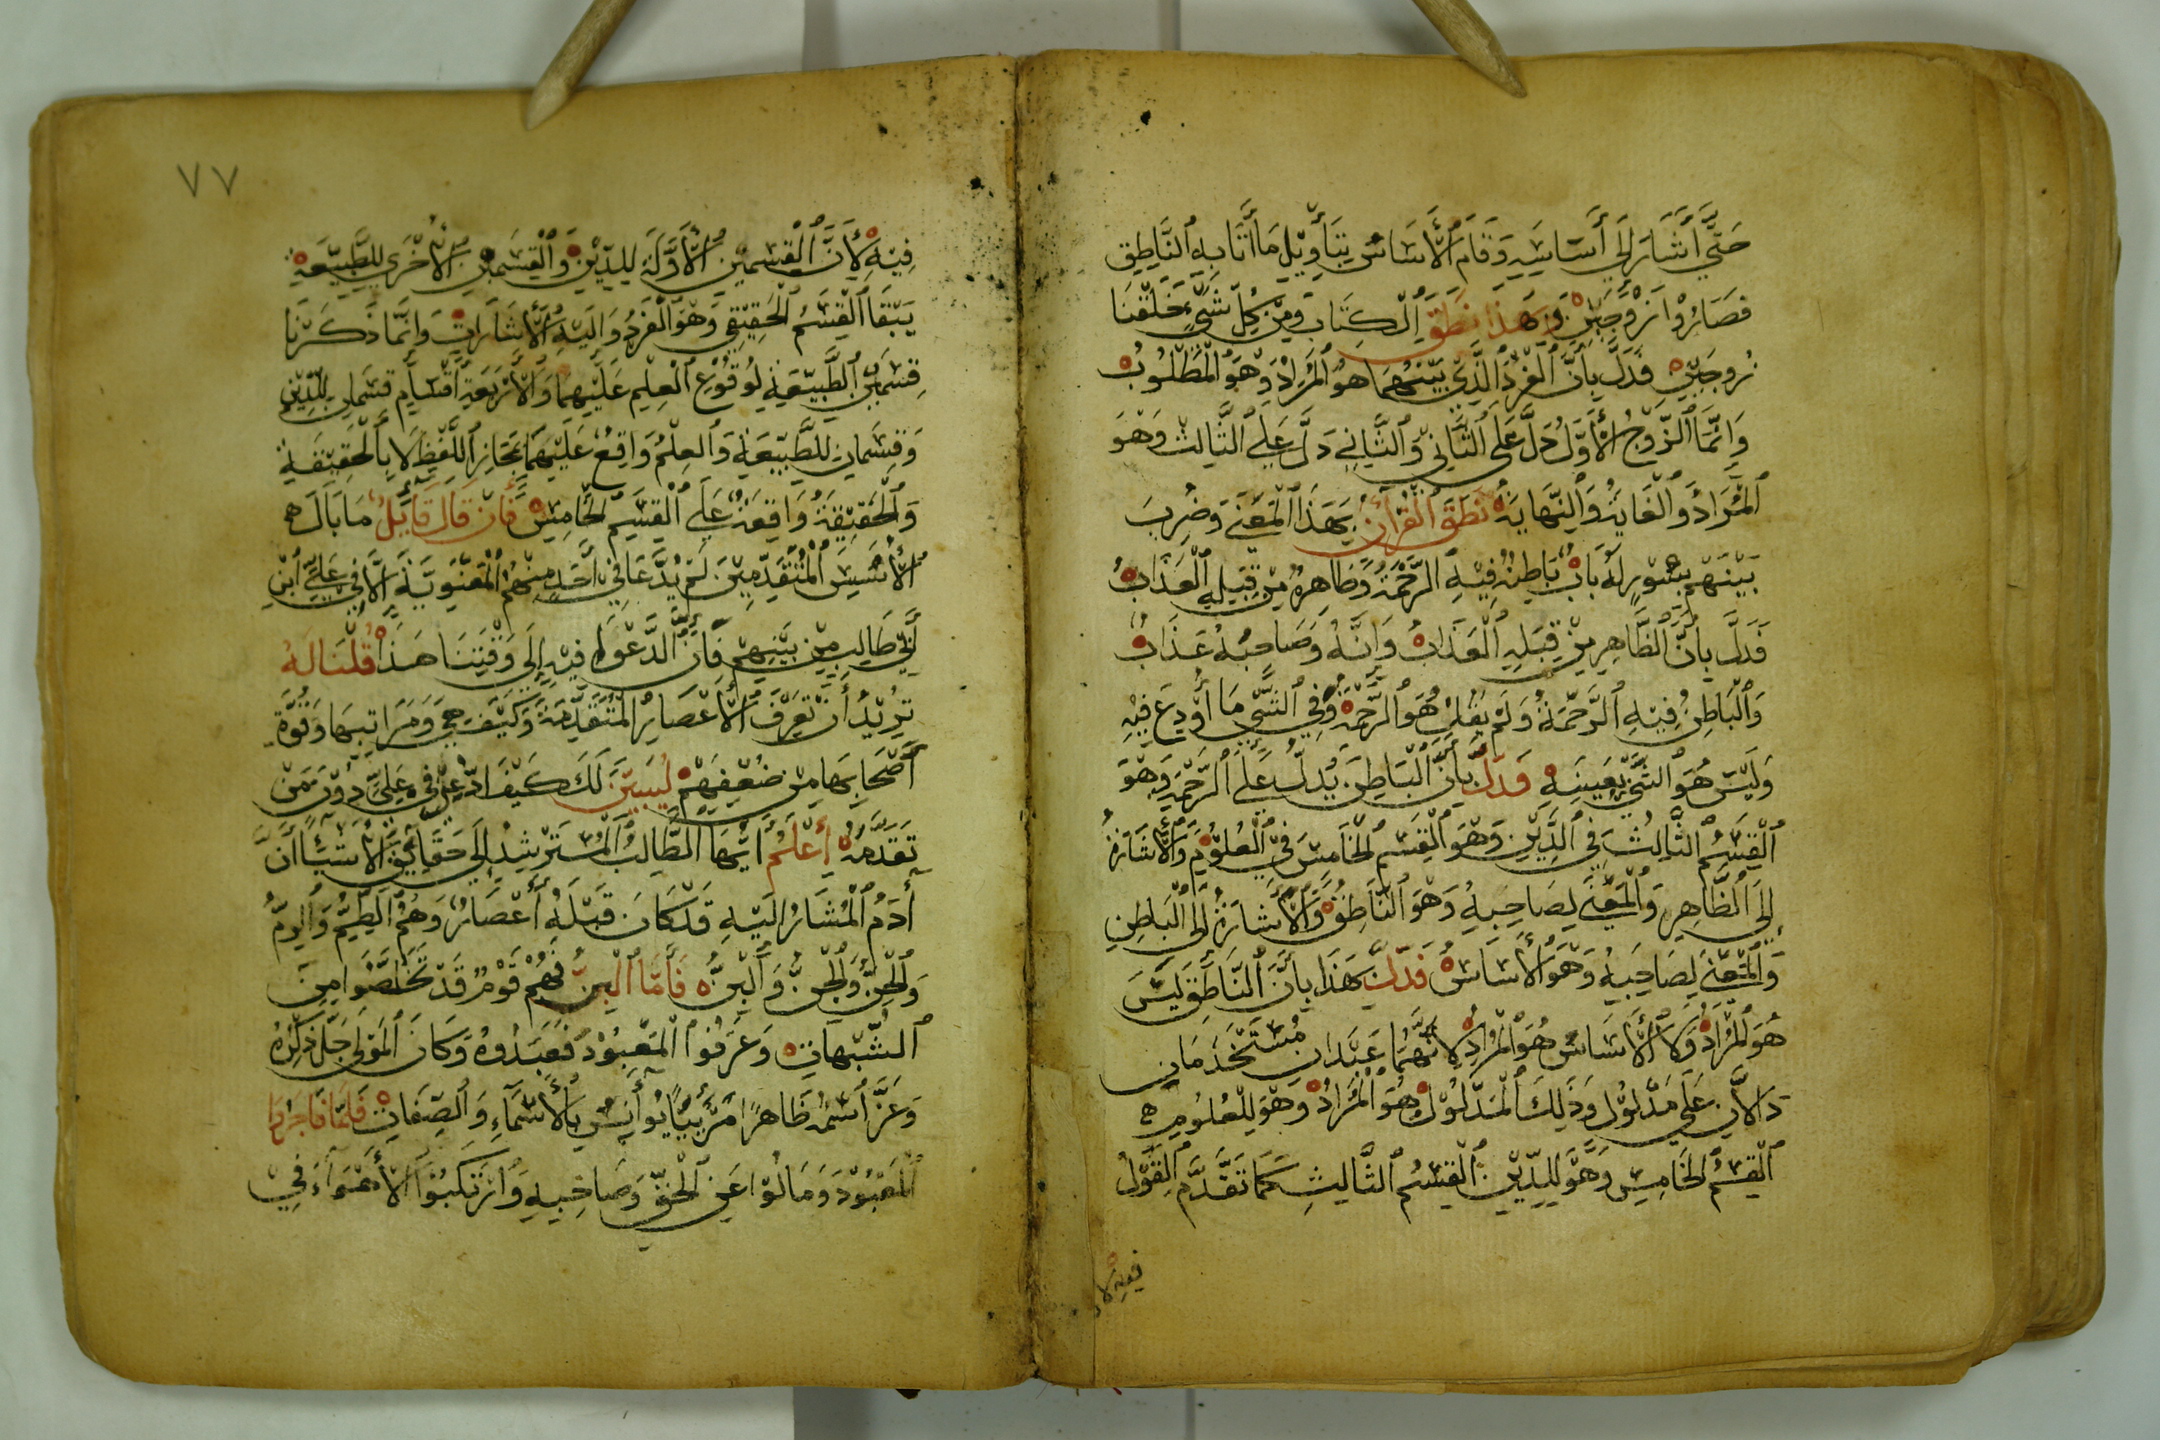 حَتَّي أَشَارَ إِلَي أَسَاسِهِ وَقَامَ ٱلأَسَاسُ بِتَأْوِيْلِ مَا اتَا بِهِ ٱلنَّاطِق
فصَارُوْا زَوْجَيْنِ وَبِهَذا نَطَقَ اِلكِتَاب وَمِنْ كِلِّ شَيْءٍ خَلَقْنَا
زُوجَيْنِ فَدَلَّ بِأَنَّ ٱلْفَرْدَ الَّذِيْ بَيْنَهُمَا هُوَ ٱلْمُرَادْ وَهُوَ ٱلْمَطْلُوْبُ
وَإِنَّمَا ٱلزَّوْجُ ٱلأَوَّلُ دَلَّ عَلَى ٱلثَّانِيْ وَٱلثَّانِي دَلَّ عَلَي ٱلثَّالِثْ وَهُوَ
ٱلمُرَادُ وَٱلْغَايَةُ وَٱلنِّهَايَةُ نَطَقَ ٱلْقُرْأَنُ بِهَذَا ٱلْمَعْنَي وَضُرِبَ
بَيْنَهُم بِسُوْرٍ لَهُ بَابٌ بَاطِنُهُ فِيْهِ ٱلرَّحْمَةُ وَظَاهِرهُ مِن قِبَلِهِ ٱلْعَذَابُ
فَدَلَّ بِأَنَّ ٱلظَّاهِرِ مِنْ قِبَلِهِ ٱلْعَذَابُ وَإِنَّهُ وَصَاحِبُهُ عَذَابٌ
وَٱلْبَاطِنُ فِيْهِ ٱلرَّحْمَةُ وَلَمْ يَقُلْ هُوَ ٱلرَّحْمَةُ وَفِي ٱلشَّيِ مَا أُوْدِعَ فِيْهِ
وَلَيْسَ هُوَ ٱلشَّيْ بِعَيْنِهِ فَدَلَّ بِأَنَّ ٱلْبَاطِنَ يُدلُّ عَلَي ٱلرَّحْمَةِ وَهُوَ
ٱلْقِسْمُ ٱلثَّالِثُ فِي ٱلدِّيْنِ وَهُوَ ٱلْقِسْم ٱلخَامِسْ فِيْ ٱلْعُلُوْمِ وَٱلأَشَارَةُ
إِلَي ٱلظَّاهِرِ وَٱلْمَعْنَي لِصَاحِبِهِ وَهُوَ ٱلنَّاطِقُ وَٱلأَشَارَةُ إِلَى ٱلْبَاطِنِ
وَٱلْمَعْنَي لِصَاحِبِهِ وَهُوَ ٱلأَسَاسُ فَدَلَّ بهَذَا بِأَنَّ ٱلنَّاطِقَ لَيْسَ
هُوَ ٱلْمُرَادُ وَلَا ٱلأَسَاسُ هُوَ ٱلْمُرَادِ لِأَنَّهُمَا عَبْدَانِ مُسْتَخْدَمَانِ
دَالاَّنِ عَلَي مَدْلُوْلٍ وَذَلِكَ ٱلْمَدْلُوْلُ هُوَ ٱلْمُرَادُ وَهُوَ لِلْعُلُوْمِ
ٱلْقِسْمُ ٱلخَامِس وَهُوَ لِلدِّيْنِ ٱلْقِسْمُ ٱلثَّالِثِ كَمَا تَقَدَّمَ ٱلقَوْلُ
فيه لأن
٧٧
فِيْهِ لِأَنَّ ٱلْقِسْمَيْنِ ٱلأَوَّلَةَ لِلدِّيْنِ وَٱلْقِسْمَيْنِ ٱلأُخْرَي لِلطَّبِيْعَةِ
يَبْقَا ٱلْقِسْمُ ٱلْحَقِيْقِي وَهُوَ ٱلْفَرْدُ وَالَيْهِ ٱلأَشَارَاتِ وَإِنَّمَا ذَكَرْنَا
قِسْمَيْنِ ٱلطَّبِيْعَةِ لِوُقُوْعِ ٱلْعِلْمِ عَلَيْهِمَا وَٱلأَرْبَعَةِ أَقْسَامٍ قِسْمَانِ لِلدِّيْنِ
وَقِسْمَانِ لِلطَّبِيْعَةِ وَٱلعِلْمُ وَاقِعٌ عَلَيْهِمَا بَمَجَازِ ٱللَّفْظِ لَا بِٱلْحَقِيْقَةِ
وَٱلْحَقِيْقَةُ وَاقِعَةٌ عَلَي ٱلْقِسْمِ ٱلخَامِسِ فَأَنْ قَالَ قَايلٌ مَا بَالَ
ٱلأُسُسَ ٱلْمُتَقَدِّمِيْنَ لَمْ يُدَّعَا فِيْ أَحَدٍ مِنْهُمُ ٱلْمَعْنَوِيَّةَ إِلَّا فِي عَلِيِّ ابْنِ
أَبِي طَالِبٍ مِنْ بَيْنِهِمْ فَإِنَّ ٱلدَّعْوَة فِيْهِ إِلَي وَقْتِنَا هَذَا قُلْنَا لَهُ
تُرِيْدُ أَنْ تَعْرِفَ ٱلأَعْصَارُ ٱلْمُتَقَدِّمَةَ وَكَيْفَ هِيَ وَمَرَاتِبهَا وَقُوَّةَ
أَصْحَابِهَا مِنْ ضُعْفِهِمْ لِيُبَيِّنَ لَكَ كَيْفَ ادُّعِيَ فِي عَلِيّ دُوْنَ مَنْ
تَقَدَّمَهُ إِعْلَمْ أَيُّهَا ٱلطَّالِبُ ٱلْمُسْتَرْشِدُ إِلَي حَقَائِقِ ٱلأَشْيَا أَنَّ
أَدَمُ ٱلْمُشَارُ الَيْهِ قَدْ كَانَ قَبْلَهُ أَعْصَارٌ وَهُمُ ٱلطِّمُّ وَٱلرِّمُّ
وَٱلْحِنُّ وَٱلْجِنُّ وَٱلْبِنُّ فَأَمَّا ٱلْبِنُّ فَهُمْ قَوْمٌ قَدْ تَخَلَّصُوا مِنَ
ٱلشُّبْهَاتِ وَعَرَفُوا ٱلْمَعْبُوْدْ فَعَبَدُوهُ وَكَانَ ٱلْمَوْلي جَلَّ ذِكْرُهُ
وَعَزَّ أسْمُهُ ظَاهرًا مَرْئِيًا يُوأَنِسُ بِٱلأَسْمَآءِ وَٱلصِّفَاتِ فَلَمَّا فَاجَرُوا
ٱلْمَعْبُوْدَ وَمَالُوْا عَنِ ٱلْحَقِّ وَصَاحِبِهِ وَٱرْتَكَبُوا ٱلأَهْوَاءَ فِيْ